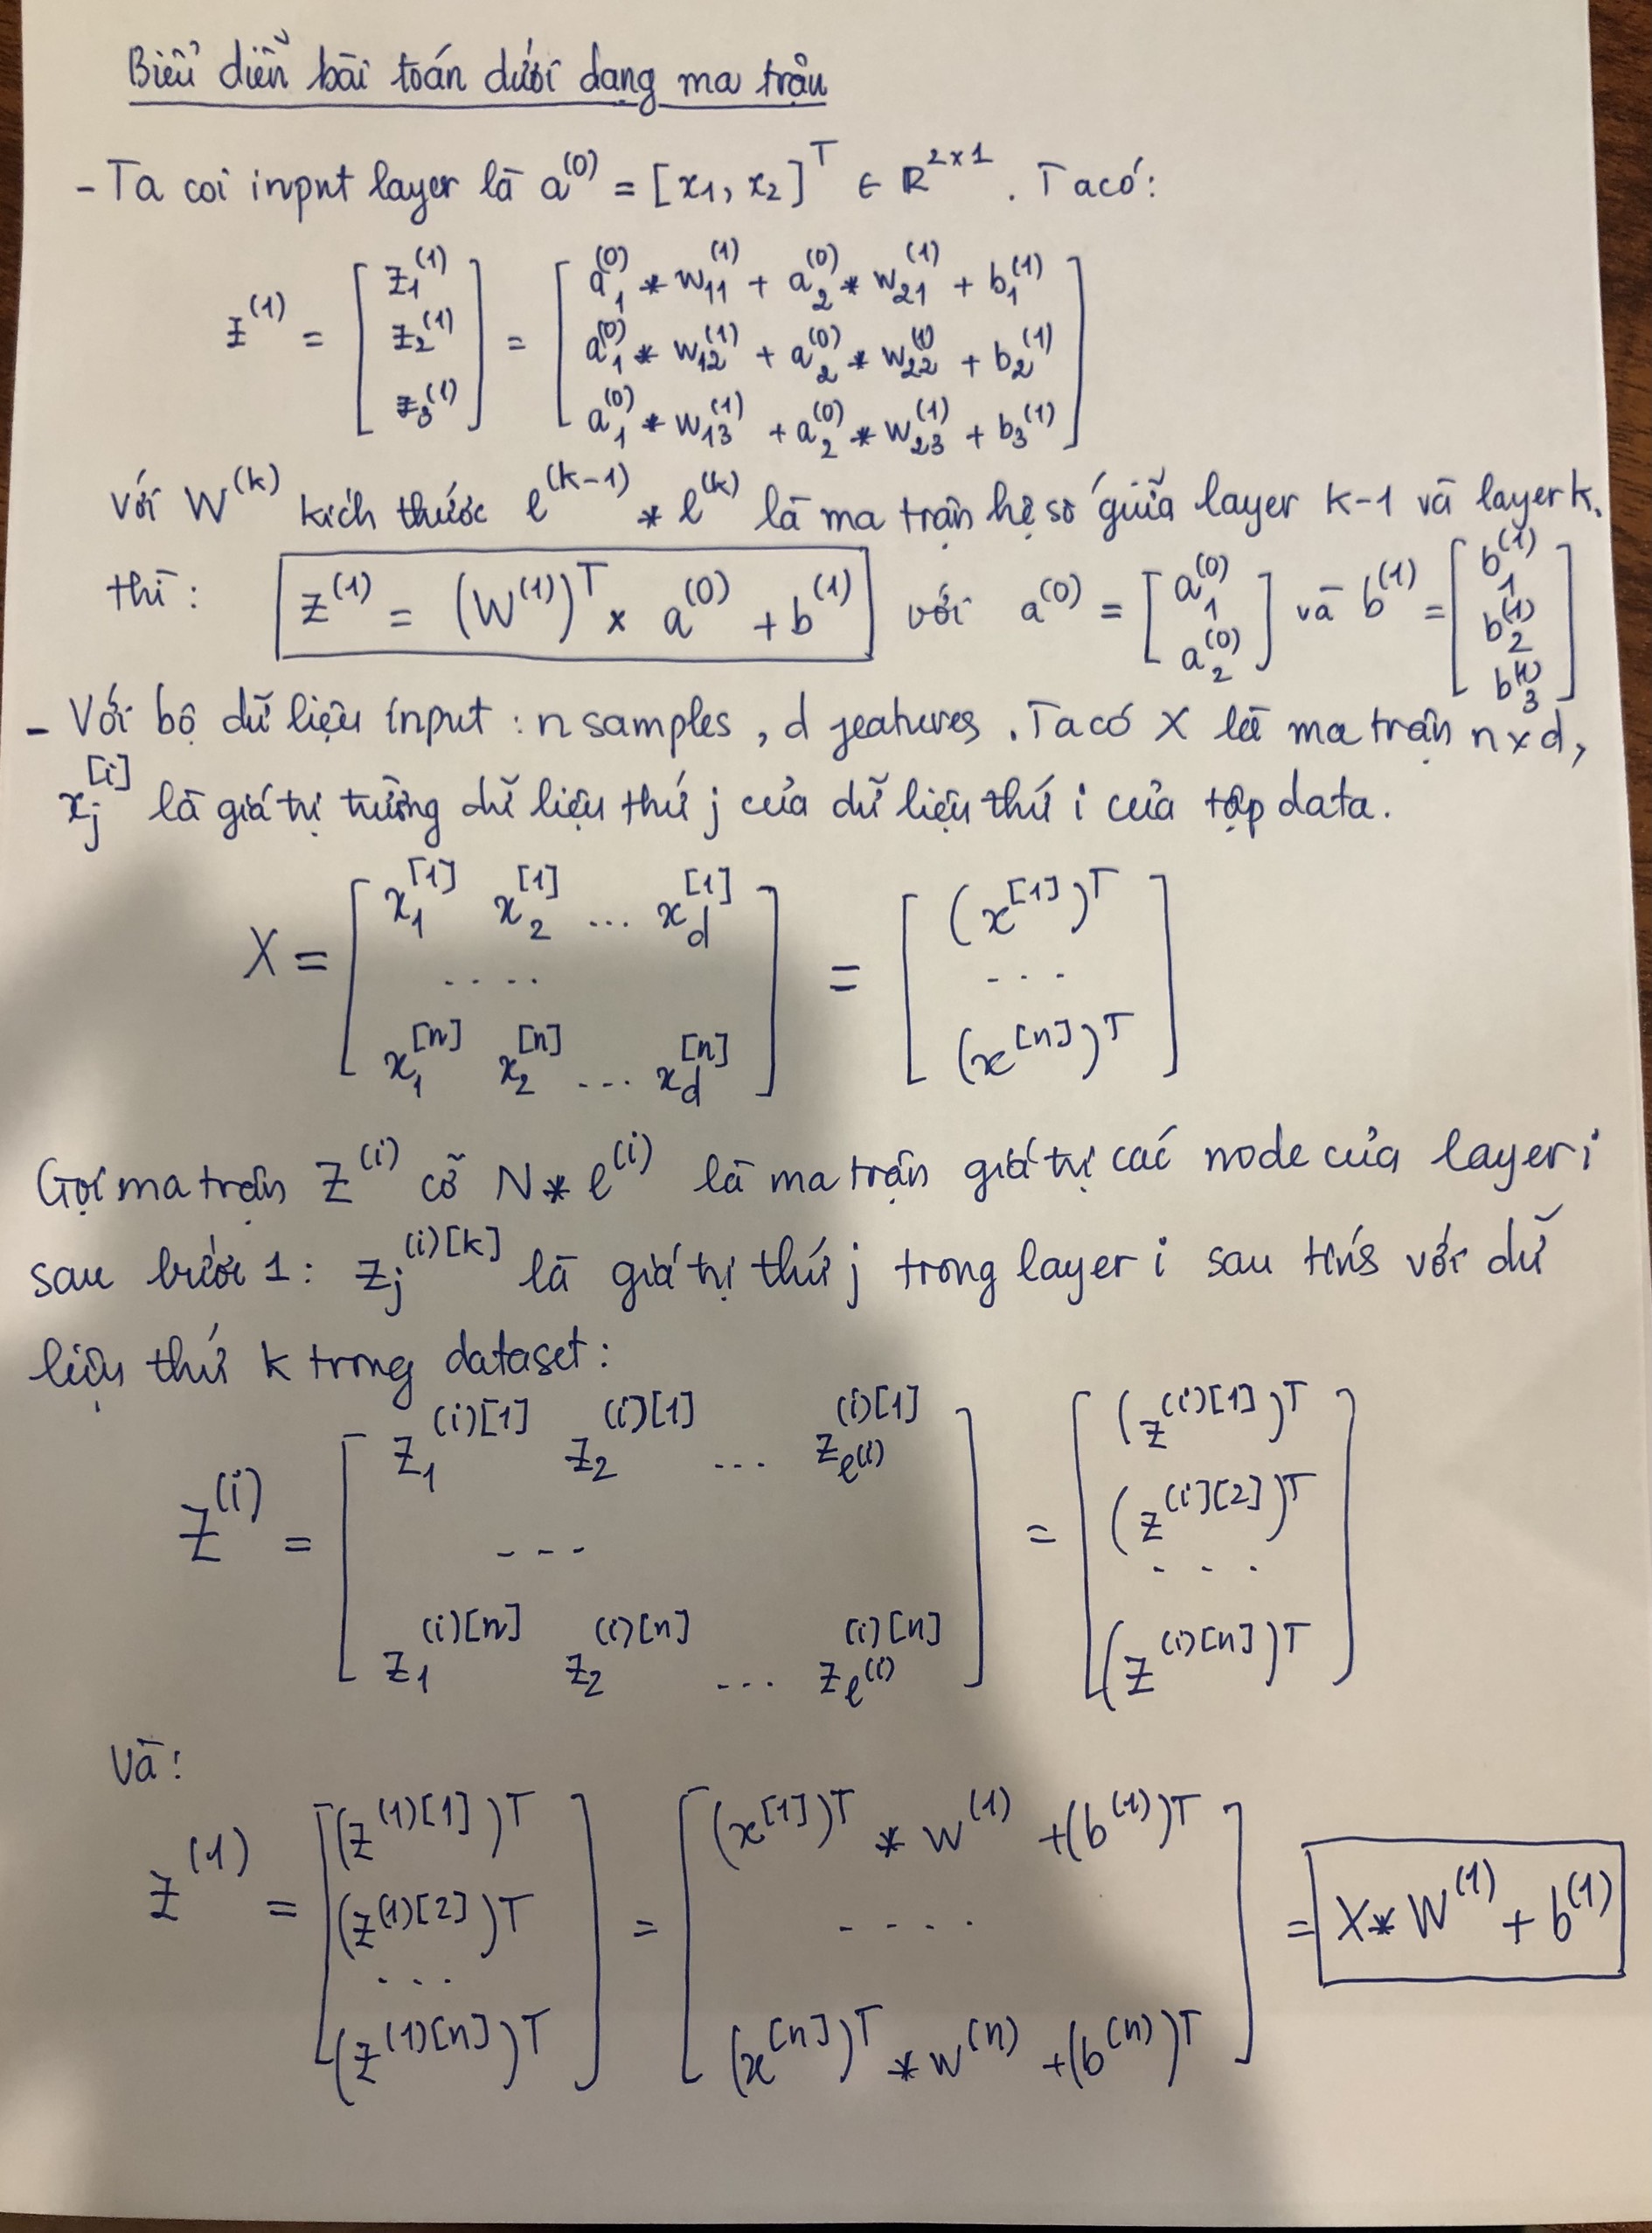 Biểu diễn bài toán dưới dạng ma trận
- Ta coi input layer là a^(0) = [x₁, x₂]^T ∈ R^(2×1) . Ta có:
z^(1) = [z₁^(1); z₂^(1); z₃^(1)] = [a₁^(0) * w₁₁^(1) + a₂^(0) * w₂₁^(1) + b₁^(1); a₁^(0) * w₁₂^(1) + a₂^(0) * w₂₂^(1) + b₂^(1); a₁^(0) * w₁₃^(1) + a₂^(0) * w₂₃^(1) + b₃^(1)]
với W^(k) kích thước l^(k-1) * l^(k) là ma trận hệ số giữa layer k-1 và layer k.
thì: z^(1) = (W^(1))^T × a^(0) + b^(1) với a^(0) = [a₁^(0); a₂^(0)] và b^(1) = [b₁^(1); b₂^(1); b₃^(1)]
- Với bộ dữ liệu input : n samples, d features. Ta có X là ma trận n×d,
x_j^[i] là giá trị trường dữ liệu thứ j của dữ liệu thứ i của tập data.
X = [x₁^[1] x₂^[1] ... x_d^[1]; ....; x₁^[n] x₂^[n] ... x_d^[n]] = [(x^[1])^T; ...; (x^[n])^T]
Gọi ma trận Z^(i) cỡ N * l^(i) là ma trận giá trị các node của layer i
sau bước 1: z_j^(i)[k] là giá trị thứ j trong layer i sau tính với dữ
liệu thứ k trong dataset:
Z^(i) = [z₁^(i)[1] z₂^(i)[1] ... z_l(i)^(i)[1]; ---; z₁^(i)[n] z₂^(i)[n] ... z_l(i)^(i)[n]] = [(z^(i)[1])^T; (z^(i)[2])^T; ...; (z^(i)[n])^T]
Và:
Z^(1) = [(z^(1)[1])^T; (z^(1)[2])^T; ...; (z^(1)[n])^T] = [(x^[1])^T * W^(1) + (b^(1))^T; ....; (x^[n])^T * W^(n) + (b^(n))^T] = X * W^(1) + b^(1)